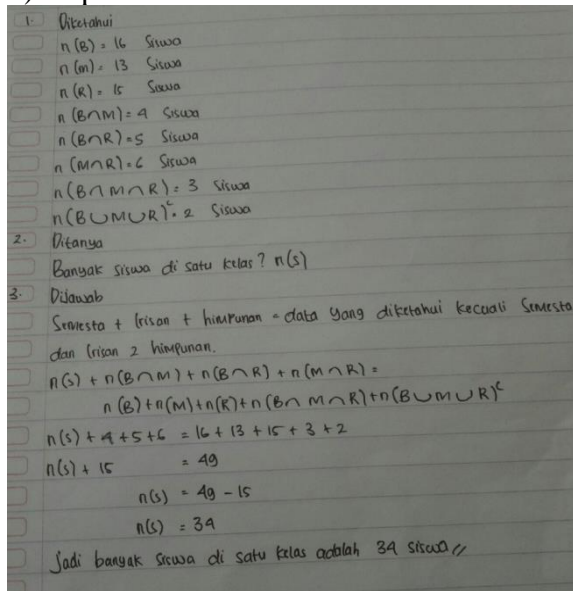 1. Diketahui
n (B) = 16 Siswa
n (m) = 13 Siswa
n (R) = 15 Siswa
n (B∩M) = 4 Siswa
n (B∩R) = 5 Siswa
n (M∩R) = 6 Siswa
n (B∩M∩R) = 3 Siswa
n (B∪M∪R)ᶜ = 2 Siswa
2. Ditanya
Banyak siswa di satu kelas? n(s)
3. Dijawab
Semesta + Irisan + himpunan = data yang diketahui kecuali Semesta
dan Irisan 2 himpunan.
n(s) + n(B∩M) + n(B∩R) + n(M∩R) =
n(B)+n(M)+n(R)+n(B∩M∩R)+n(B∪M∪R)ᶜ
n(s) + 4 + 5 + 6 = 16 + 13 + 15 + 3 + 2
n(s) + 15 = 49
n(s) = 49 - 15
n(s) = 34
Jadi banyak siswa di satu kelas adalah 34 siswa //